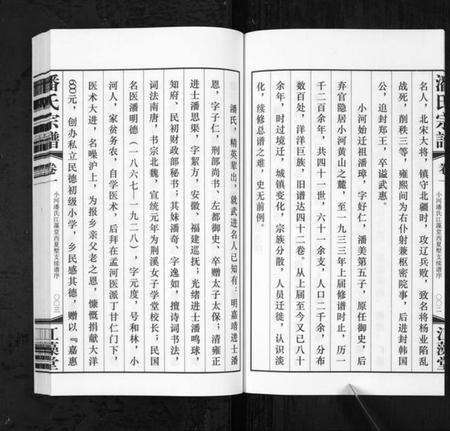 名人，北宋大将，镇守北疆时，攻辽兵败，致名将杨业陷乱
战死，削秩三等，雍熙间为右仆射兼枢密院事，后进封韩国
公，追封郑王，卒谥武惠。
小河始迁祖潘璋，字好仁，潘美第五子，原任御史，后
弃官隐居小河黄山之麓，至一九三三年上届修谱时止，历一
千二百余年，共四十一世，六十一余支，人口二千余，分布
数百处，洋洋巨族，旧谱达四十二卷。从上届至今又已八十
余年，时过境迁，城镇变化，宗族分散，人员迁徙，认识淡
化，续修总谱之难，史无前例。
潘氏，精英辈出，就武进名人已知有：明嘉靖进士潘
恩，字子仁，刑部尚书、左都御史、卒赠太子太保；清雍正
进士潘思榘，字絜方，安徽、福建巡抚；光绪进士潘鸣球，
知府、民初财政部秘书；其妹潘奇，字逸如，擅诗词书法，
词法南唐，书宗北魏，宣统元年为荆溪女子学堂校长；民国
名医潘明德（一八六七—一九二八），字元度，号和林，小
河人，家贫务农，自学医术，后拜在孟河医派丁甘仁门下，
医术大进，名噪沪上，为报乡亲父老之恩，慷慨捐献大洋
600元，创办私立民德初级小学，乡民感其德，赠以『嘉惠
潘氏宗谱
卷一
小河潘氏江藻堂西夏墅支续谱序
〇〇三
江藻堂